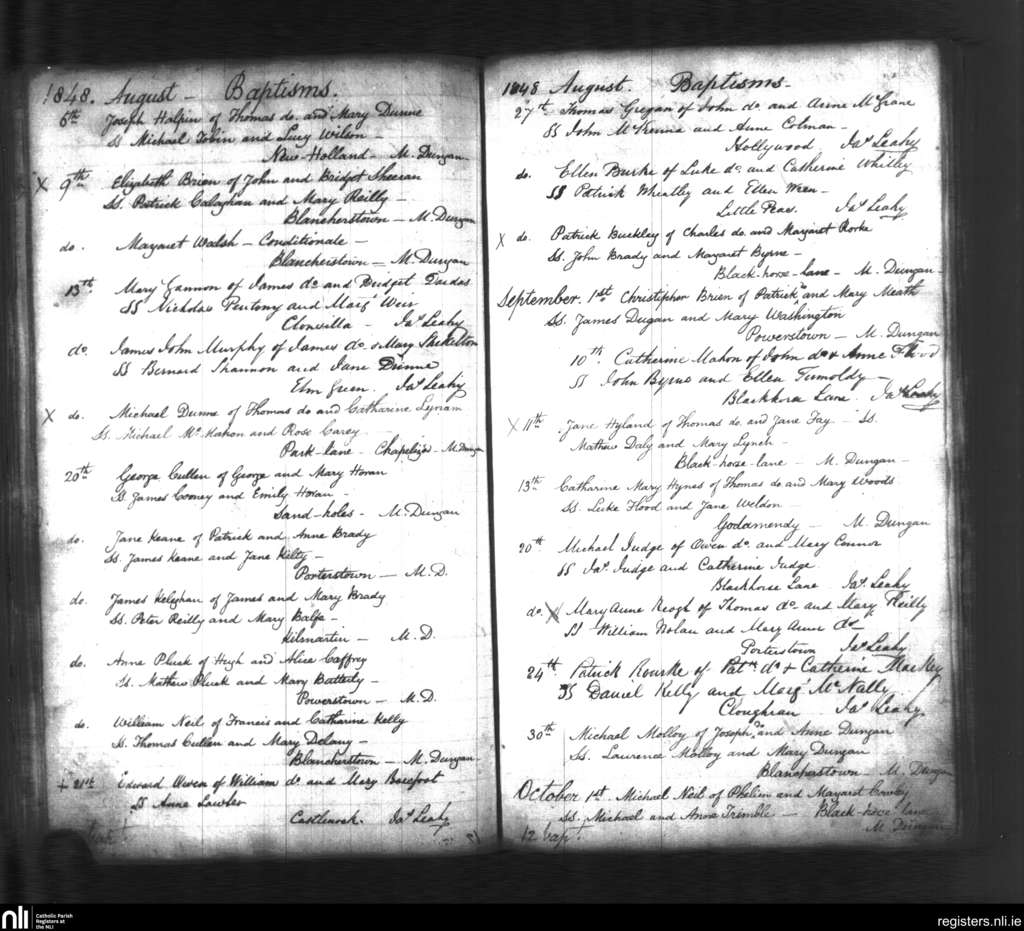 1848. August — Baptisms.
6th Joseph Halpin of Thomas do. and Mary Dunne
Ss Michael Tobin and Lucy Wilson —
New-Holland — M. Dungan
X 9th Elizabeth Brien of John and Bridget Sheeran
Ss. Patrick Calaghan and Mary Reilly —
Blancherstown — M. Dungan
do. Margaret Walsh — Conditionate —
Blancherstown — M. Dungan
13th Mary Gannon of James do and Bridget
SS Nicholas Pentony and Marg Weir
Clonsilla — Jas Leahy
do. James John Murphy of James do & Mary Skelelton
SS Bernard Shannon and Jane Dunne
Elm Green. Jas Leahy
X do. Michael Dunne of Thomas do and Catharine Lynam
Ss. Michael Mc.Mahon and Rose Carey —
Park-lane — Chapelizod — M. Dungan
20th George Cullen of George and Mary Horan
Ss James Cooney and Emily Horan —
Sand-holes — M. Dungan
do. Jane Keane of Patrick and Anne Brady
Ss. James Keane and Jane Kelty —
Porterstown — M. D.
do. James Keleghan of James and Mary Brady
Ss. Peter Reilly and Mary Balfe —
Kilmartin — M. D.
do. Anne Pluck of Hugh and Alice Caffrey
Ss. Mathew Pluck and Mary Batterly —
Powerstown — M. D.
do. William Neil of Francis and Catharine Kelly
Ss. Thomas Cullen and Mary Delany —
Blancherstown — M. Dungan
+ 21st Edward Owen of William do. and Mary Barefoot
Ss Anne Lawler
Castlenock. Jas Leahy
1848 August. Baptisms —
27th Thomas Gregan of John do. and Anne McGrane
SS John McKenna and Anne Colman —
Hollywood Jas Leahy
do. Ellen Burke of Luke do. and Catherine Whitley
SS Patrick Wheatley and Ellen Wren —
Little Peas. Jas Leahy
X do. Patrick Buckley of Charles do. and Margaret Rorke
Ss. John Brady and Margaret Byrne —
Black-horse-lane — M. Dungan —
September. 1st Christipher Brien of Patrick and Mary Meath
Ss. James Dugan and Mary Washington
Powerstown — M. Dungan
10th Catherine Mahon of John do & Anne
SS John Byrne and Ellen Tumoldy —
Blackhorse Lane. Jas Leahy
X 11th Jane Hyland of Thomas do. and Jane Fay — Ss.
Mathew Daly and Mary Lynch —
Black-horse-lane — M. Dungan —
13th Catharine Mary Hynes of Thomas do and Mary Woods
Ss. Luke Flood and Jane Weldon —
Godamendy — M. Dungan
20th Michael Judge of Owen do. and Mary Connor
SS Jas. Judge and Catherine Judge
Blackhorse Lane Jas. Leahy
do. X Mary Anne Keogh of Thomas do. and Mary Reilly
SS William Nolan and Mary Anne do —
Porterstown Jas Leahy
24th Patrick Rourke of Patk do & Catherine Mackey
SS Daniel Kelly and Marg Mc Nally
Cloughran Jas Leahy.
30th Michael Molloy of Joseph and Anne Dungan
Ss. Laurence Molloy and Mary Dungan
Blancherstown — M. Dungan
October 1st. Michael Neil of Phelim and Margaret
Ss. Michael and Anne Trimble — Black-horse lane
12 bapt M. Dungan
nli
Catholic Parish
Registers at
the NLI
registers.nli.ie